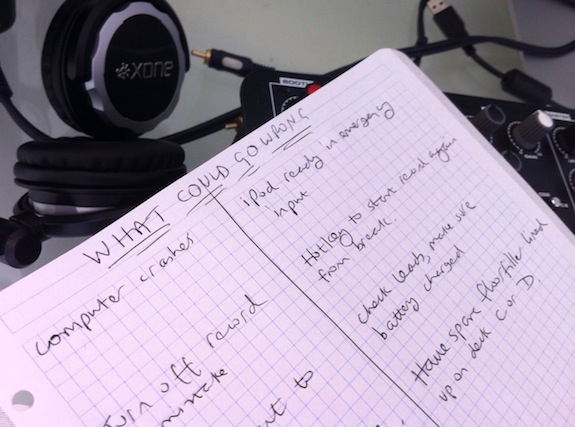 xone
BOOTH
WHAT COULD GO WRONG
Computer crashes
turn off record
mistake
to
iPod ready in emergency
input
Hotkey to start record again
from break.
Check leads, make sure
battery charged
Have spare floorfiller lined
up on deck C or D.